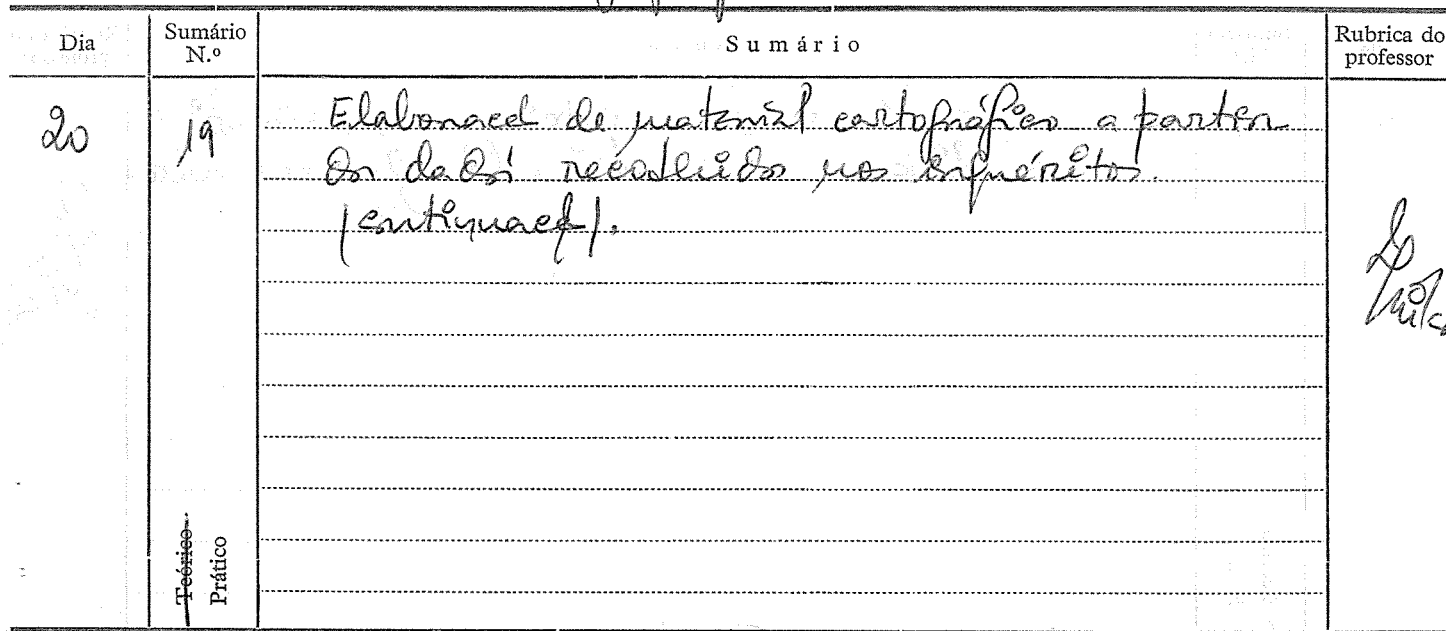 Dia
Sumário N.º
Sumário
Rubrica do professor
20
19
Elaboração de material cartográfico a partir
dos dados recolhidos nos inquéritos
(continuação).
Teórico
Prático